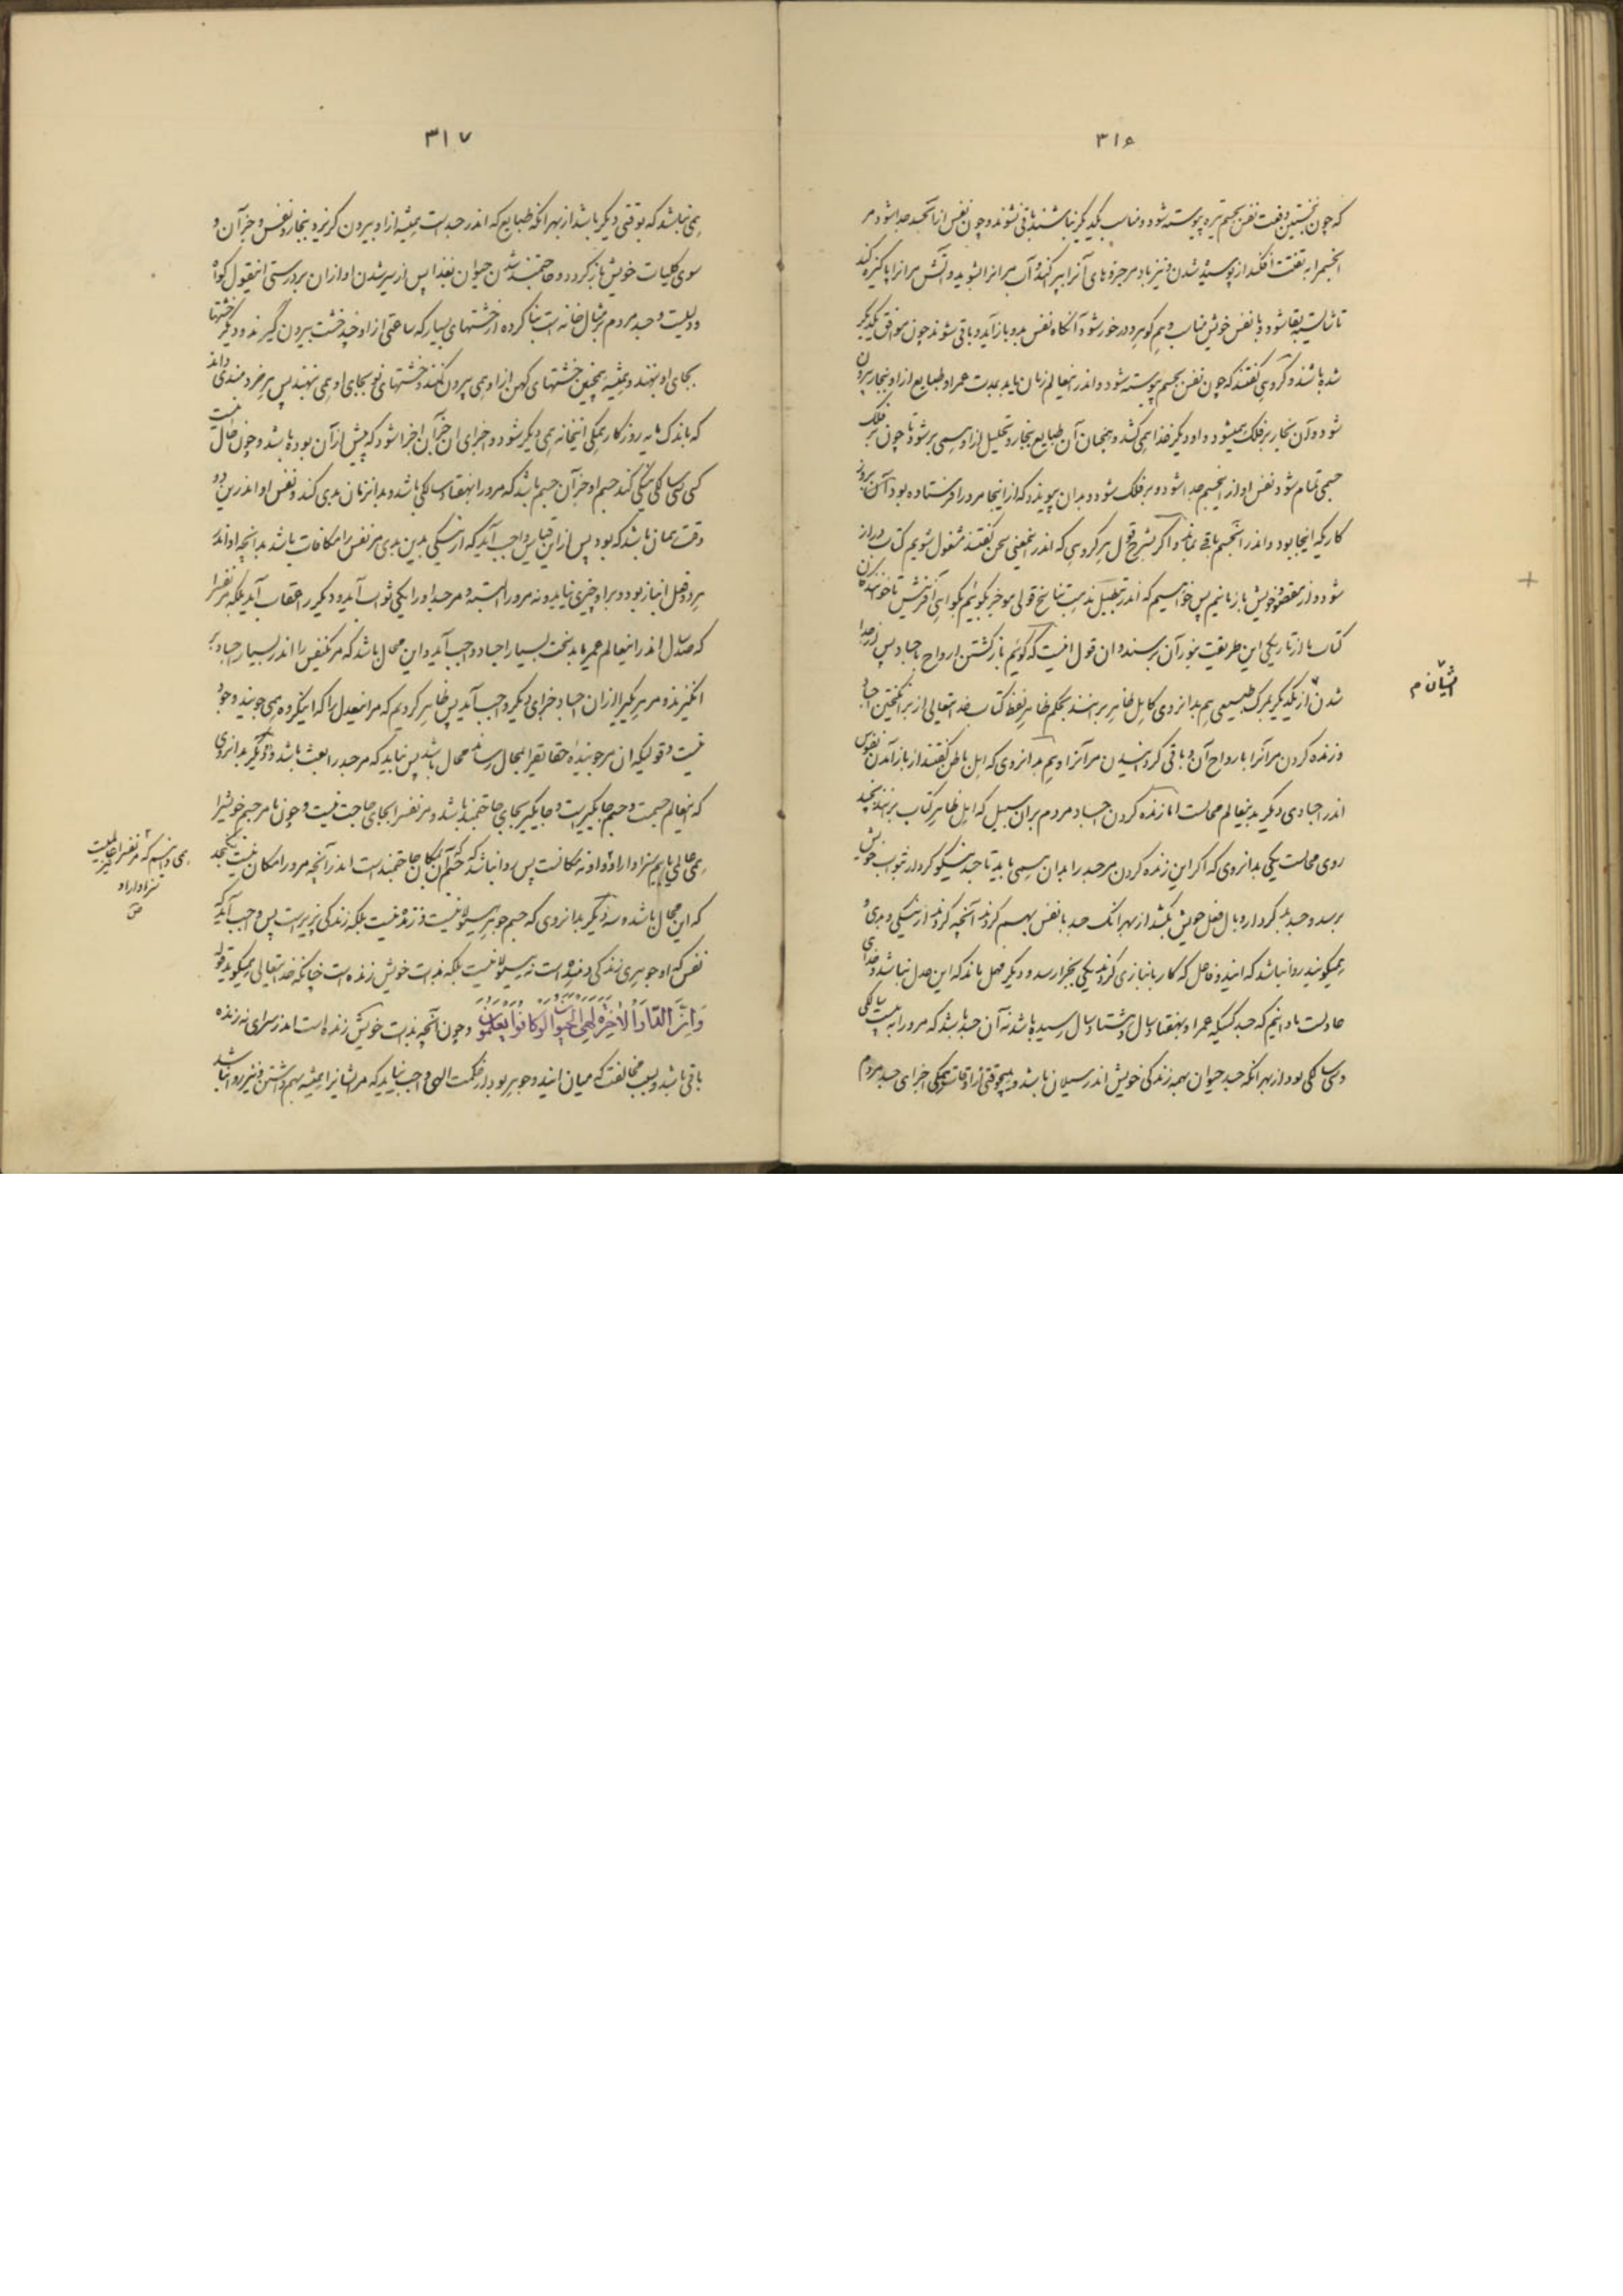 ۳۱۶
که چون نخستین دفعت نفس بجسم تیره پیوسته شود و مناسب یکدیگر نباشند باقی نشوند و چون نفس از آن جسد جدا شود مر
آن جسم را به تفتت افکند از پوسیده شدن و نیز باد مر جزوهای آنرا ببر کند و آب مر آنرا بشوید و آتش مر آنرا پاکیزه کند
تا شایسته بقا شود و با نفس خویش مناسب و هم گوهر و درخور شود آنگاه نفس بدو باز آید و باقی شوند چون موافق یکدیگر
شده باشند و گروهی گفتند که چون نفس بجسم پیوسته شود و اندر اینعالم زمان یابد بمدت عمر او طبایع از او بخار بیرون
شود و آن بخار بر فلک همیشود و او دیگر غذا همی کشد و همچنان آن طبایع بخار و تحلیل از او همی برشود تا چون بر فلک
جسمی تمام شود نفس او از این جسم جدا شود و بر فلک شود و بدان پیوندد که از اینجا مر او را فرستاده بود آن روز
کاریکه اینجا بود و اندر آن جسم باقی بماند و اگر بشرح قول هر گروهی که اندر این معنی سخن گفتند مشغول شویم کتاب دراز
شود و از مقصود خویش بازمانیم پس خواهیم که اندر تعطیل مذهب تناسخ قولی موجز بگوئیم بگواهی آفرینش تا خوانندگان
کتاب ما از تاریکی این طریقت بنور آن برسند و آن قول اینست که گوئیم بازگشتن ارواح باجساد پس از جدا
شدن از یکدیگر بمرگ طبیعی هم بدانروی که اهل ظاهر بر آنند بحکم ظاهر لفظ کتاب خدایتعالی از برانگیختن اجساد
و زنده کردن مر آنرا بارواح آن و باقی گردانیدن مر آنرا و هم بدانروی که اهل باطن گفتند از باز آمدن نفوس
اندر اجسادی دیگر بدینعالم محالست اما زنده کردن اجساد مردم بر آن سبیل که اهل ظاهر کتاب بر آنند بچند
روی محالست یکی بدانروی که اگر این زنده کردن مر جسد را بدان همی باید تا جسد نیکو کردار بثواب خویش
برسد و جسد بد کردار وبال فعل خویش بکشد از بهر آنک جسد با نفس بهم کردند آنچه کردند از نیکی و بدی و
همیگویند روا نباشد که این دو فاعل که کار بانبازی کردند یکی بجزا رسد و دیگر مهمل باند که این عدل نباشد و خدای
عادلست ما دانیم که جسد کسیکه عمر او بهفتاد سال و هشتاد سال رسیده باشد نه آن جسد باشد که مر او را به بیست سالگی
و سی سالگی بود از بهر آنکه جسد حیوان همه زندگی خویش اندر سیلان باشد و هیچوقتی از اوقات همگی اجزای جسد مردم
ایشان م
۳۱۷
همی نباشد که بوقتی دیگر باشد از بهر آنکه طبایع که اندر جسد است همیشه از او بیرون گریزد و ببخار و نفس و جز آن و
سوی کلیات خویش باز گردد و حاجتمند شدن حیوان بغذا پس از سیر شدن او از آن بر درستی اینقول گواه
و دلیلست و جسد مردم بر مثال خانه است بنا کرده از خشتهای بسیار که ساعتی از او چند خشت بیرون گیرند و دیگر خشتها
بجای او بنهند و همیشه همچنین خشتهای کهن از او همی بیرون کنند و خشتهای نو بجای او همی نهند پس هر خردمندی داند
که باندک مایه روزگار همگی اینخانه همی دیگر شود و اجزای آن جز آن اجزا شود که پیش از آن بوده باشد و چون حال اینست
کسی بسی سالگی نیکی کند جسم او جز آن جسم باشد که مر او را بهفتاد سالگی باشد و بدانزمان بدی کند و نفس او اندرین دو
وقت همان باشد که بود پس از این قیاس واجب آید که از نیکی بدین بدی مر نفس را مکافات باشد بدانچه او اندر
هر دو فعل انباز بود و بر او چیزی نیاید و نه مر او را البته و مر جسد او را یکی ثواب آید و دیگر را عقاب آید بلکه مر نفس را
که صد سال اندر اینعالم عمر یابد بخت بسیار اجساد واجب آید و این محال باشد که مر یکنفس را اندر بسیار اجساد بر
انگیزند و مر هر یکیرا از آن اجساد جزای دیگر واجب آید پس ظاهر کردیم که مر اینعدل را که اینگروه همی جویند وجود
نیست و قولیکه آن مر جوینده حقایقرا بمحال رساند محال باشد پس نباید که مر جسد را بعث باشد و دیگر بدانروی
که اینعالم جسمست و جسم جایگیر است و جایگیر بجای حاجتمند باشد و مر نفسرا بجای حاجت نیست و چون ما مر جسم خویشرا
همی عالمی یابیم سزاوار او و او نه مکانست پس روا نباشد که جسم آن بمکان حاجتمند است اندر آنچه مر او را مکان نیست بگنجد
که این محال باشد و سه دیگر بدانروی که جسم جوهر هیولانیست و زنده نیست بلکه زندگی پذیر است پس واجب آید که
نفس که او جوهری زندگی دهنده است نه هیولانیست بلکه بذات خویش زنده است چنانکه خدایتعالی همیگوید قوله
وَاِنَّ الدّارَ الْاٰخِرَةَ لَهِيَ الْحَيَوانُ لَوْ كانُوا يَعْلَمُونَ و چون آنچه بذات خویش زنده است اندر سرای نه زنده
باقی باشد و بسبب مخالفت که میان این دو جوهر بود از حکمت الهی واجب نیاید که مر ایشانرا همیشه بهم داشتن و نیز روا نباشد
همی دانیم که مر نفسرا عالمیست
سزاوار او
ص